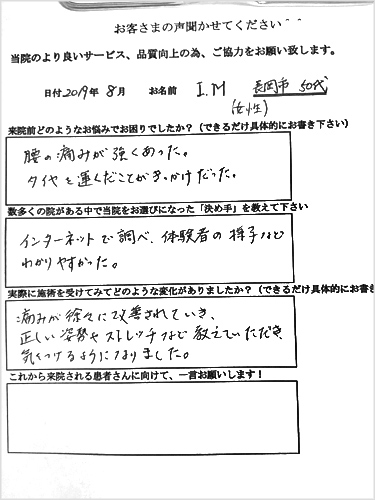 お客さまの声聞かせてください＾＾
当院のより良いサービス、品質向上の為、ご協力をお願い致します。
日付 2019年 8月 お名前 I.M 長岡市 50代
(女性)
来院前どのようなお悩みでお困りでしたか？（できるだけ具体的にお書き下さい）
腰の痛みが強くあった。
タイヤを運んだことがきっかけだった。
数多くの院がある中で当院をお選びになった「決め手」を教えて下さい
インターネットで調べ、体験者の様子など
わかりやすかった。
実際に施術を受けてみてどのような変化がありましたか？（できるだけ具体的にお書き
痛みが徐々に改善されていき、
正しい姿勢やストレッチなど教えていただき
気をつけるようになりました。
これから来院される患者さんに向けて、一言お願いします！